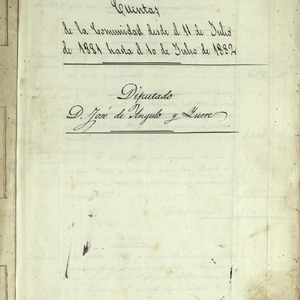 Cuentas
de la Comunidad desde el 11 de Julio
de 1881 hasta el 10 de Julio de 1882
Diputado
D. José de Angulo y Yurre